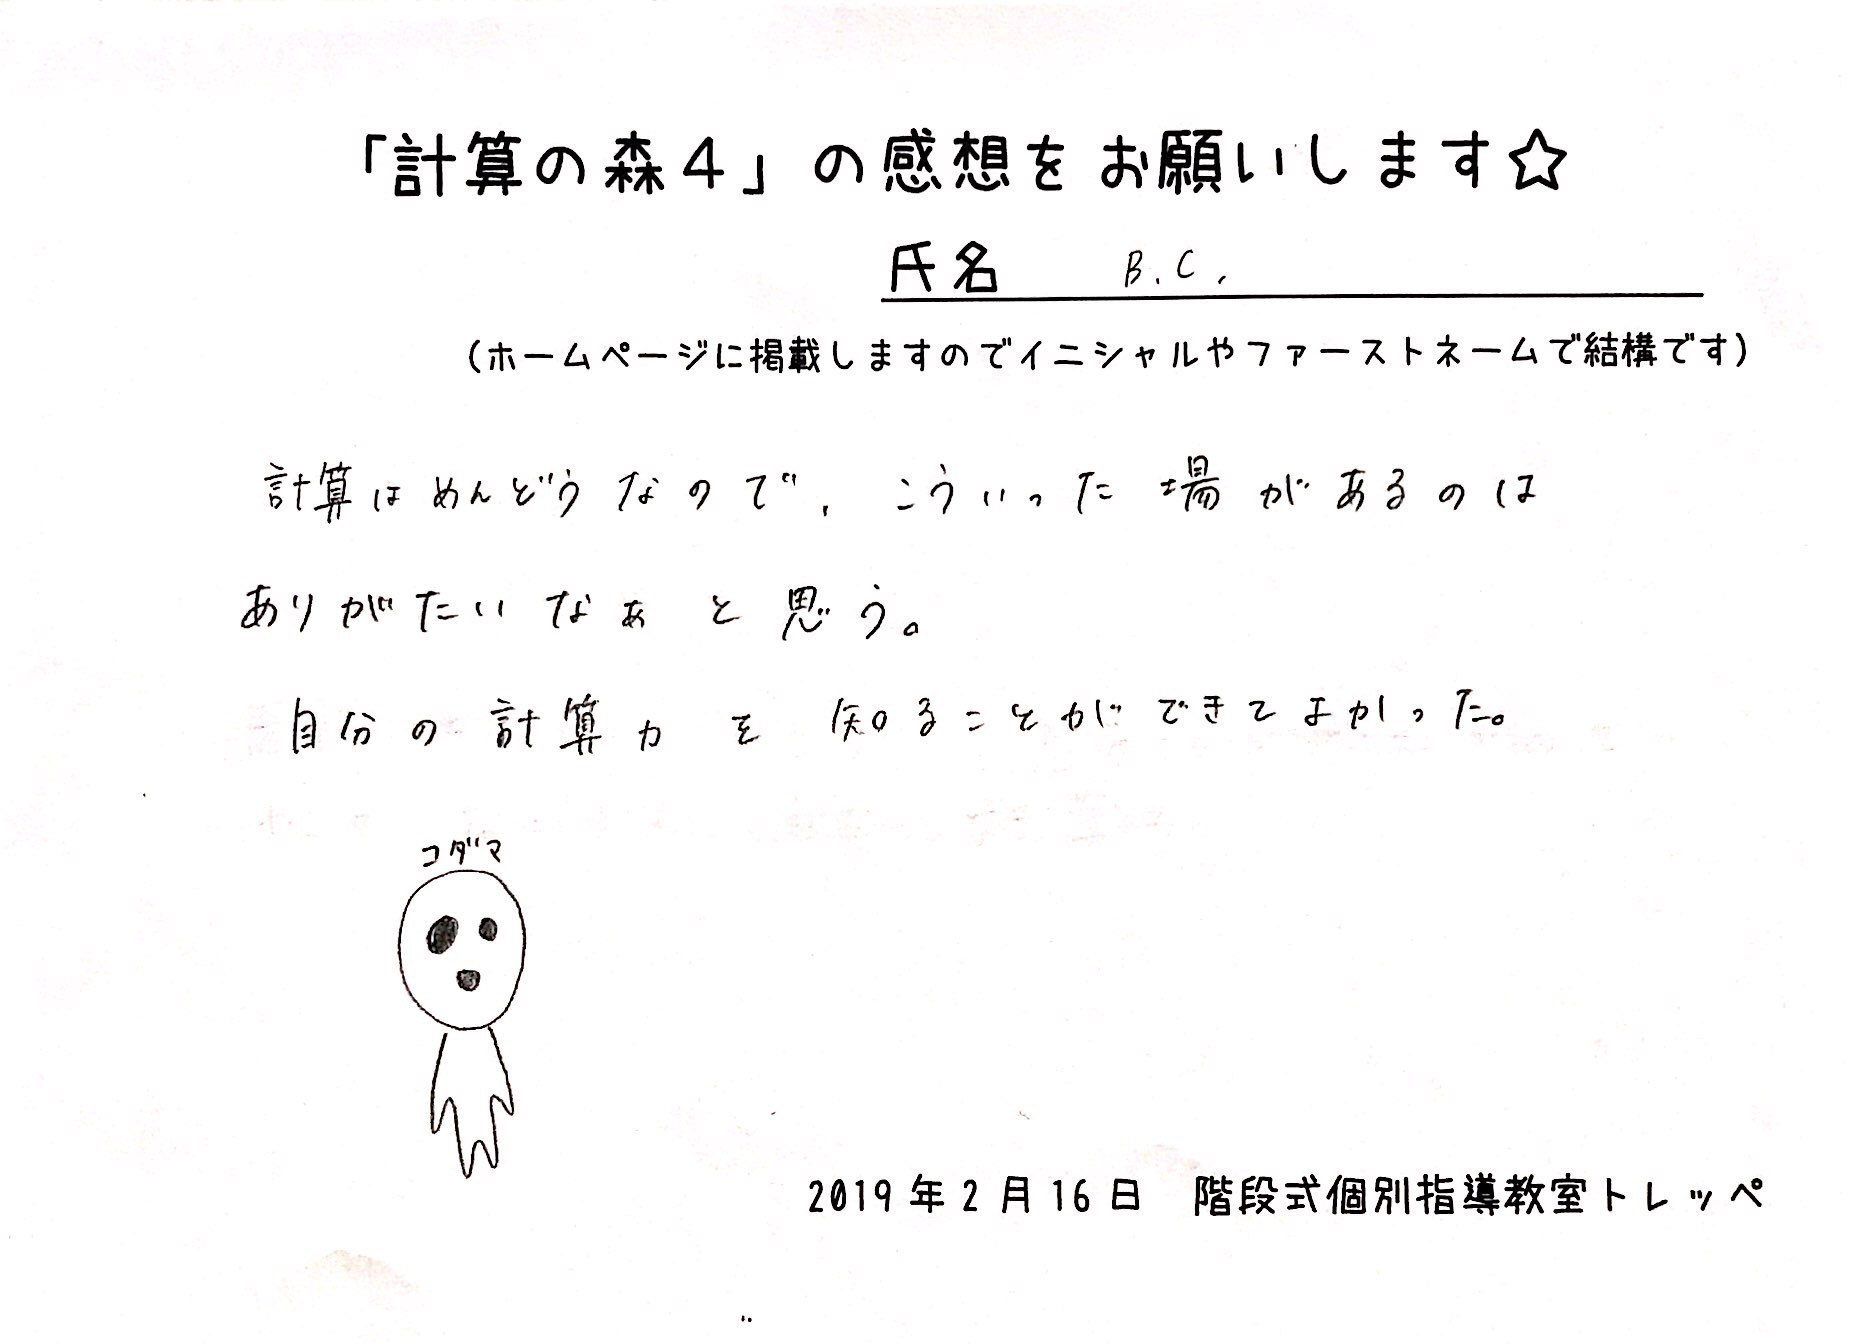 「計算の森４」の感想をお願いします☆
氏名 B.C.
(ホームページに掲載しますのでイニシャルやファーストネームで結構です)
計算はめんどうなので、こういった場があるのは
ありがたいなぁと思う。
自分の計算力を知ることができてよかった。
コダマ
2019年2月16日 階段式個別指導教室トレッペ